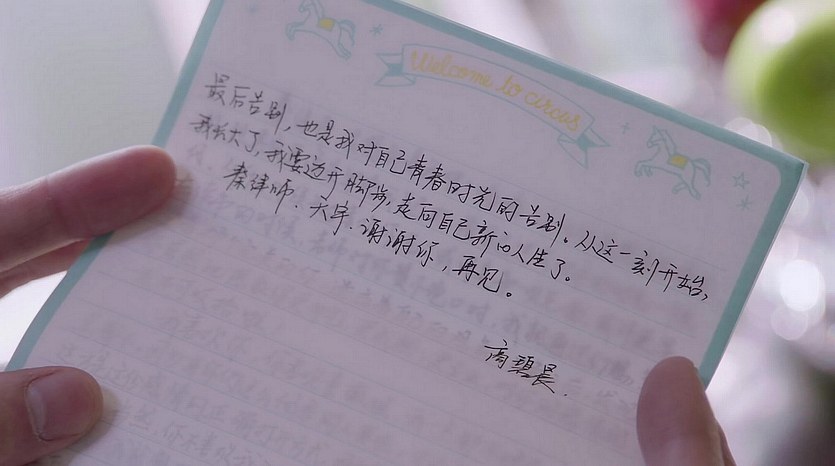 Welcome to circus
最后告别，也是我对自己青春时光的告别。从这一刻开始，
我长大了，我要迈开脚步，走向自己新的人生了。
秦律师．天宇．谢谢你，再见。
商碧晨．